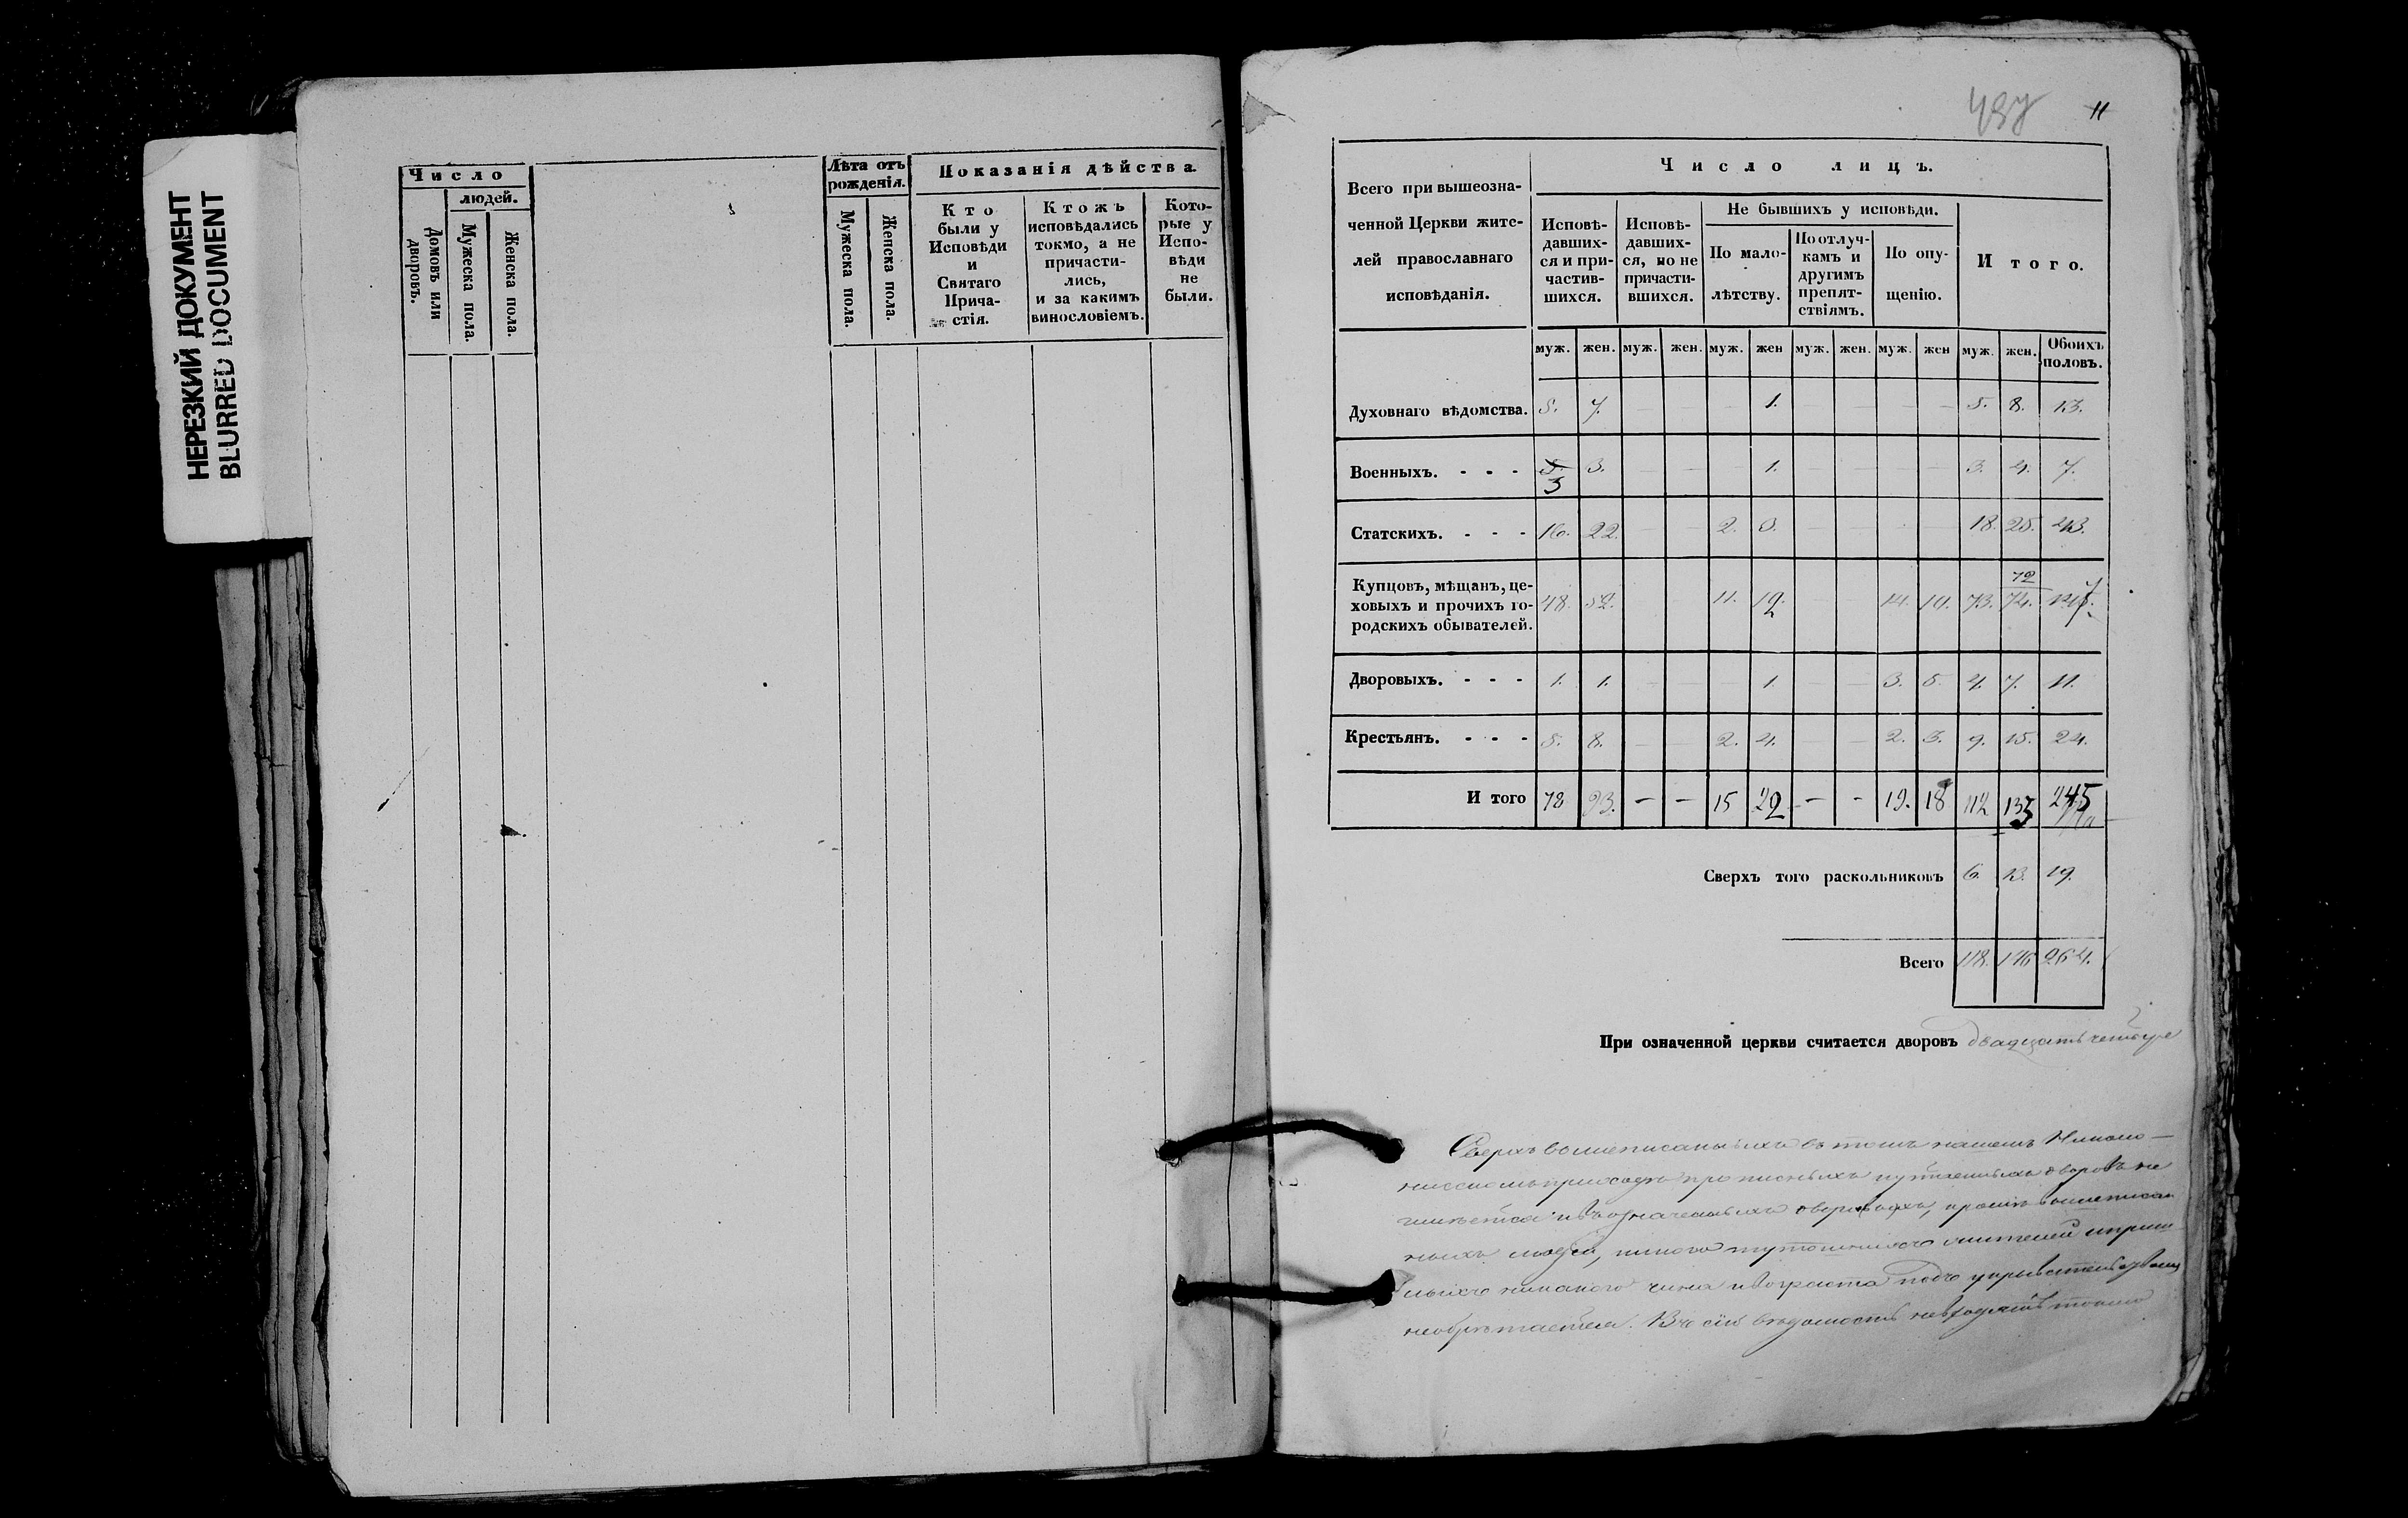 НЕРЕЗКИЙ ДОКУМЕНТ
BLURRED DOCUMENT
Число
людей.
Домовъ или дворовъ.
Мужеска пола.
Женска пола.
Лѣта отъ рожденія.
Мужеска пола.
Женска пола.
Показанія дѣйства.
Кто были у Исповѣди и Святаго Причастія.
Ктожъ исповѣдались токмо, а не причастились, и за какимъ винословіемъ.
Которые у Исповѣди не были.
11
Всего при вышеозначенной Церкви жителей православнаго исповѣданія.
Число лицъ.
Исповѣдавшихся и причастившихся.
Исповѣдавшихся, но не причастившихся.
Не бывшихъ у исповѣди.
По малолѣтству.
По отлучкамъ и другимъ препятствіямъ.
По опущенію.
Итого.
муж. жен. муж. жен. муж. жен муж. жен. муж. жен муж. жен. Обоихъ половъ.
Духовнаго вѣдомства. 5. 7. — — — 1. — — — — 5. 8. 13.
Военныхъ. - - - 5. 3 3. — — — 1. — — — — 3. 4. 7.
Статскихъ. - - - 16. 22. — — 2. 3. — — — — 18. 25. 43.
Купцовъ, мѣщанъ, цеховыхъ и прочихъ городскихъ обывателей. 48. 52. — — 11. 12. 14. 10. 73. 72 74.
Дворовыхъ. - - - 1. 1. — — — 1. — — 3. 5. 4. 7. 11.
Крестьянъ. - - - 5. 8. — — 2. 4. — 2. 3. 9. 15. 24.
И того 78 93. — — 15 22 — - 19. 18 112 133 245
Сверхъ того раскольниковъ 6. 13. 19.
Всего 118. 146 264.
При означенной церкви считается дворовъ двадцать четыре
Сверхъ вышеписанныхъ въ томъ нашемъ
приходѣ прописныхъ и утаенныхъ дворовъ не
имѣется и въ означенныхъ дворѣхъ, кромѣ вышеписан
ныхъ людей, никого тутошнихъ жителей и приш
лыхъ никакого чина и возраста подъ укрывательствомъ
необрѣтается. Въ сію вѣдомость не входятъ токмо